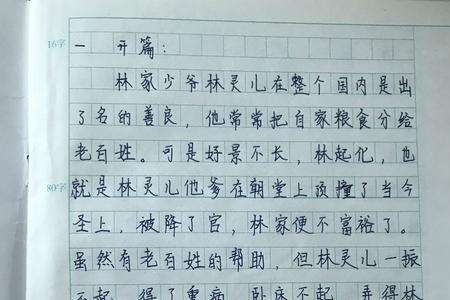 16字
一 开篇：
林家少爷林灵儿在整个国内是出
了名的善良，他常常把自家粮食分给
老百姓。可是好景不长，林起化，也
80字
就是林灵儿他爹在朝堂上顶撞了当今
圣上，被降了官，林家便不富裕了。
虽然有老百姓的帮助，但林灵儿一振
不起，得了重病，卧床不起，弄得林